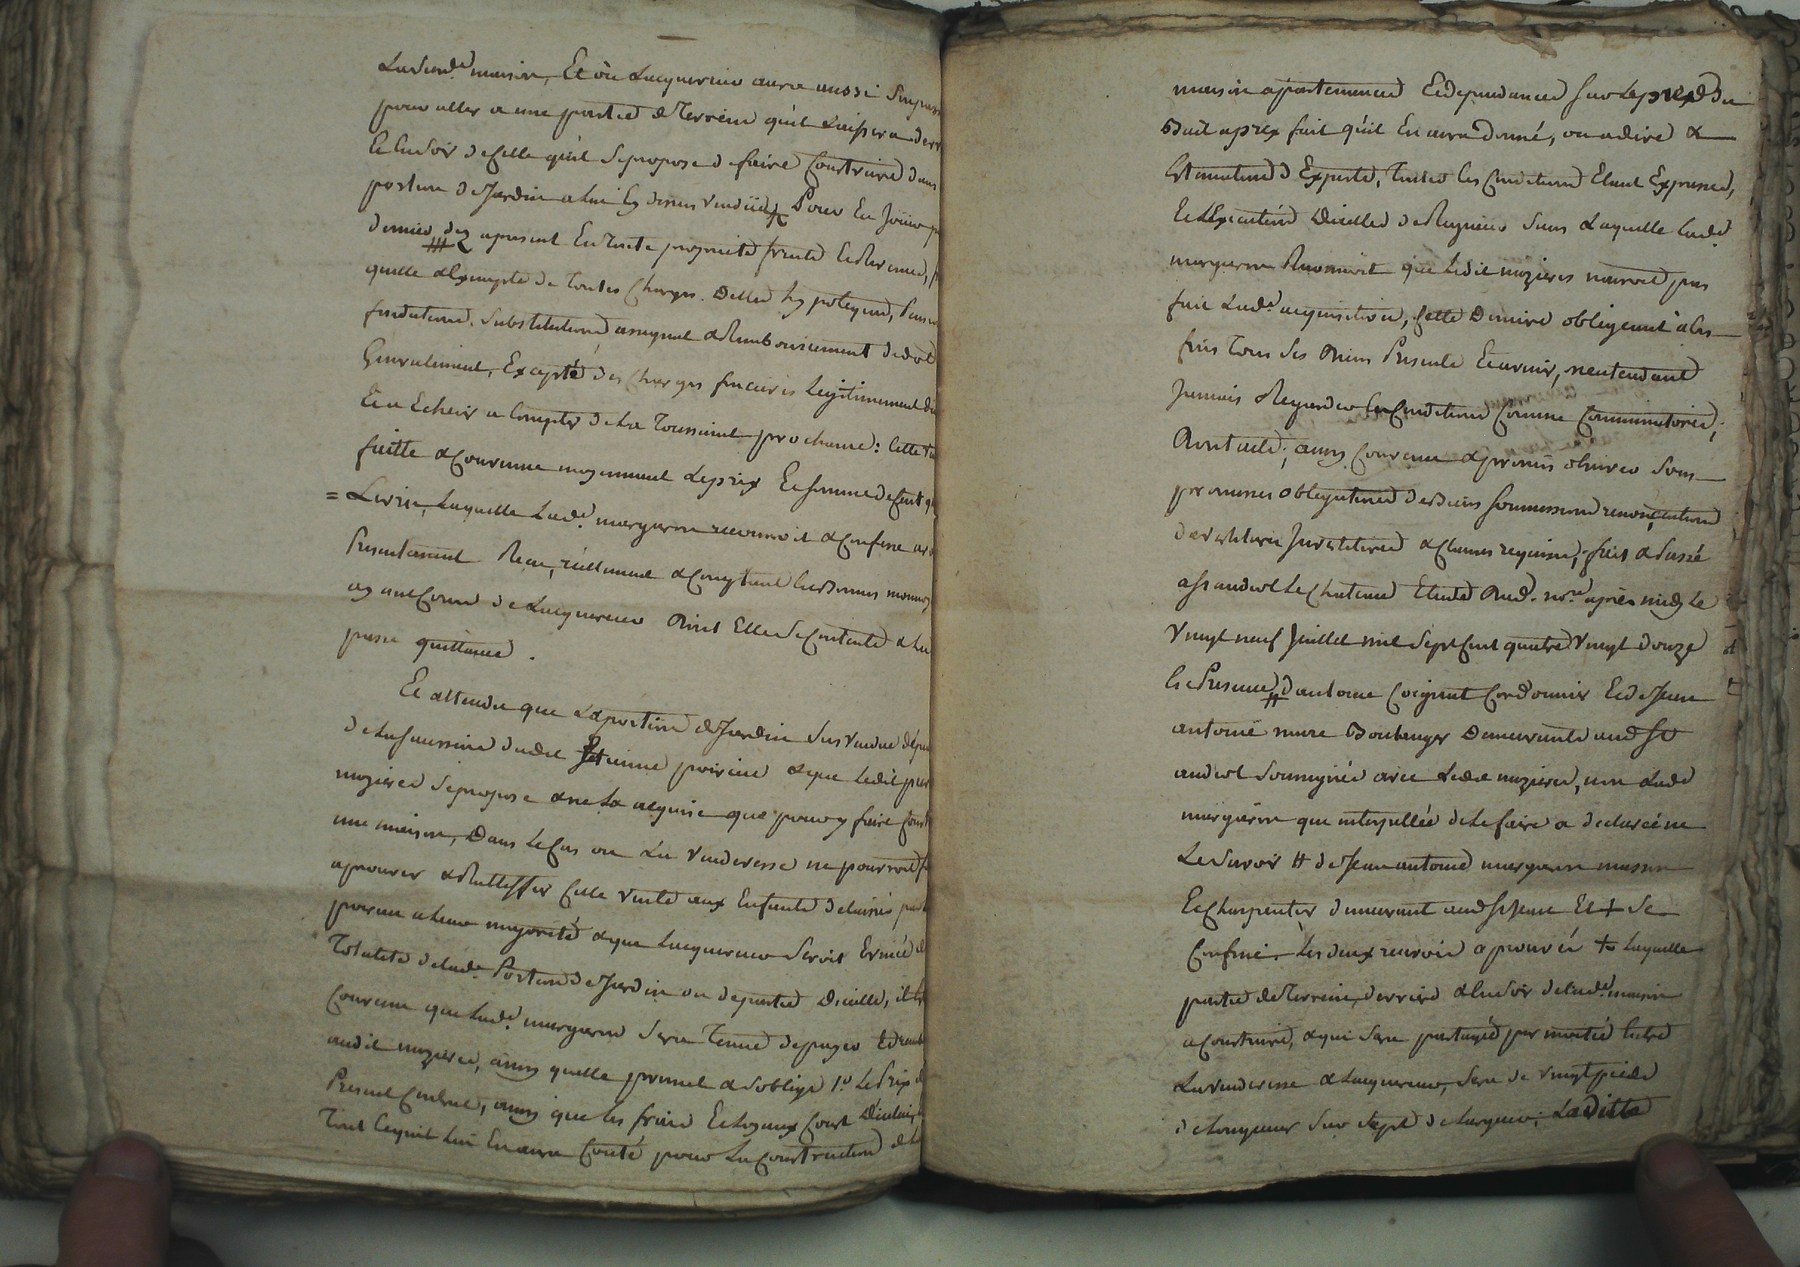 Ladsusd.e maison, Et où Lacquereur aura aussi son pass
pour aller a une partie de Terrein qu'il Laissera derr
le Susoir de celle qu'il se propose de faire Construire dans
portion de Jardin a lui cy dessus vendue Pour En Joüir p
dernier dez apresent En Toute proprieté fruits Et Revenus,
quitte & Exempte de toutes Charges. Dettes hypoteques, Pension
fondations. Substitutions, assignat & Remboursement de dot
Generalement, Excepté des Charges foncieres Legitimement dü
Et a Echeoir a Compter de La Toussaint prochaine: Cette V
faitte & Convenue moyennant Le prix Et somme de Cent q
= Livres, Laquelle Lad.e margaron reconnoit & Confesse av
Presentement Reçu, réellement & Comptant En Bonnes monnoy
ayant Cours de Lacquereur dont Elle se Contente & Lui
passe quittance.
Et attendu que La portion de Jardin Sus vendue dépen
de La Succession dudit Etienne poirieu & que Ledit
mozieres se propose & ne La acquise que pour y faire Const
une maison, Dans Le Cas ou La Venderesse ne pourroit f
aprouver & Rattiffier Cette vente aux Enfants delaissés par
poirieu a Leur majorité & que Lacquereur Seroit Evincé de
Totalité de Lad.e Portion de Jardin ou de partie Dicelle, il E
Convenu que Lad.e margaron Sera Tenue de payer Et rem
audit mozieres, ainsy quelle promet & S'oblige 1.o Le Prix d
Present Contrat, ainsy que les frais Et Loyaux Cout
Tout Ce qu'il Lui En aura Couté pour La Construction de L
maison apartenances Et dependances sur Le pied du
Bail a prix fait qu'il En aura donné, ou a dire &
Estimation d'Experts, Toutes les Conditions Etant Expresses,
Et Lexecution Dicelles de Rigueur Sans Laquelle Lad.e
margaron Reconnoit que Ledit mozieres n'auroit pas
fait Lad.e acquisition, Cette Derniere obligeant a Ces
fins Tous Ses Biens Presents Et avenir, n'entendant
Jamais Regarder les Conditions Comme Comminatoires;
Dont acte; ainsy Convenu & promis observer Sous
promesses obligations de Biens Soumissions renonciations
fait & Passé
a St andeol Le Chateau Etude Dud. no.re après midy Le
Vingt neuf Juillet mil Sept Cent quatre Vingt Douze
En Presence d'antoine Coignet Cordonnier Et de Jean
antoine mure Boulanger Demeurants aud St
andeol Soussignés avec Ledit mozieres, non Lade
margaron que interpellée de Le faire a declaré ne
Le Savoir # de Jean antoine margaron masson
Et Charpentier demeurant aud St Jean Et + Se
Confine. Les deux renvois aprouvés + Laquelle
partie de Terrein, derriere & Susoir de Lad.e maison
a Construire, & qui Sera partagée par moitié Entre
La venderesse & Lacquereur, Sera de vingt pieds
de Longueur Sur Sept de Largeur; Laditte